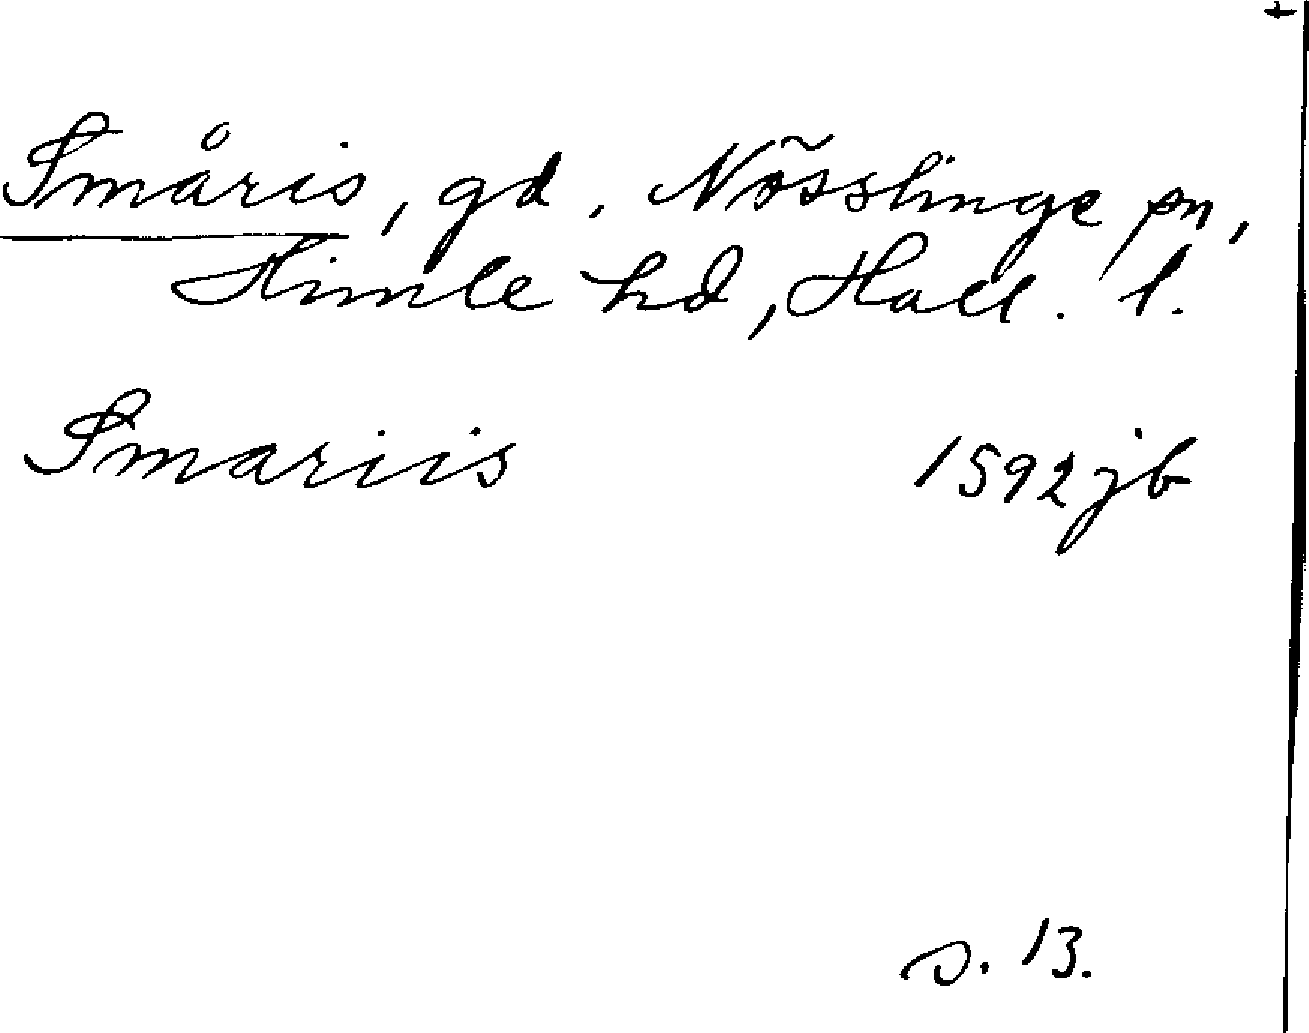 Småris, gd, Nösslinge sn,
Himle hd, Hall. l.
Smariis 1592 jb
s. 13.